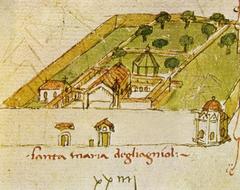 ·santa maria degliagnioli:~
xxiij